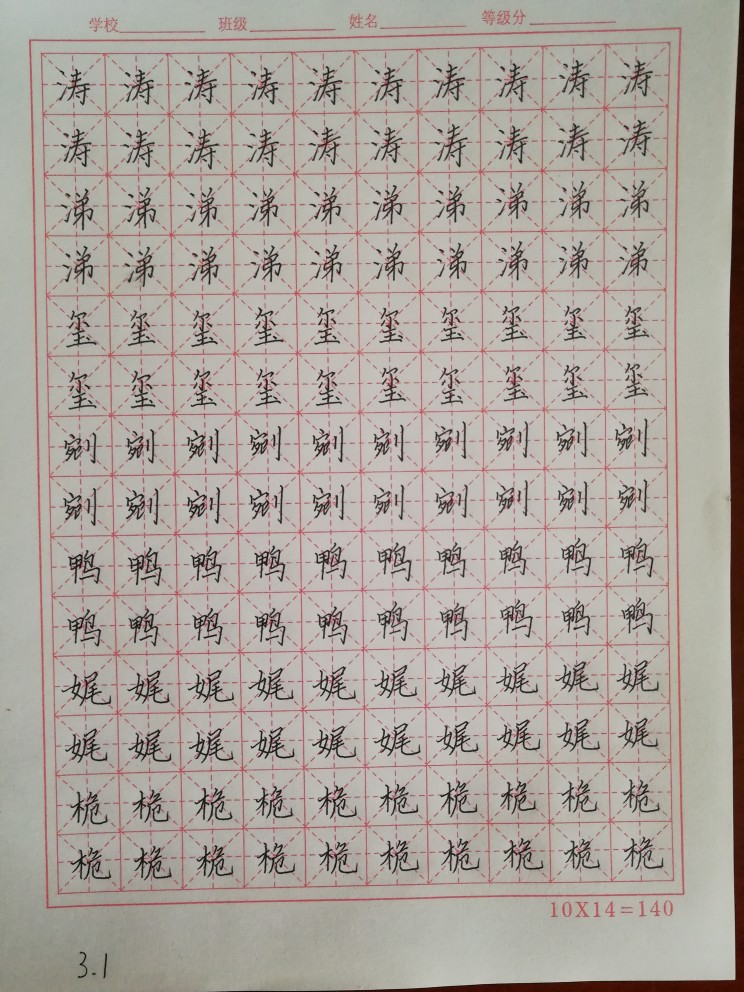 学校 班级 姓名 等级分
涛 涛 涛 涛 涛 涛 涛 涛 涛 涛
涛 涛 涛 涛 涛 涛 涛 涛 涛 涛
涕 涕 涕 涕 涕 涕 涕 涕 涕 涕
涕 涕 涕 涕 涕 涕 涕 涕 涕 涕
玺 玺 玺 玺 玺 玺 玺 玺 玺 玺
玺 玺 玺 玺 玺 玺 玺 玺 玺 玺
剜 剜 剜 剜 剜 剜 剜 剜 剜 剜
剜 剜 剜 剜 剜 剜 剜 剜 剜 剜
鸭 鸭 鸭 鸭 鸭 鸭 鸭 鸭 鸭 鸭
鸭 鸭 鸭 鸭 鸭 鸭 鸭 鸭 鸭 鸭
娓 娓 娓 娓 娓 娓 娓 娓 娓 娓
娓 娓 娓 娓 娓 娓 娓 娓 娓 娓
桅 桅 桅 桅 桅 桅 桅 桅 桅 桅
桅 桅 桅 桅 桅 桅 桅 桅 桅 桅
10X14=140
3.1